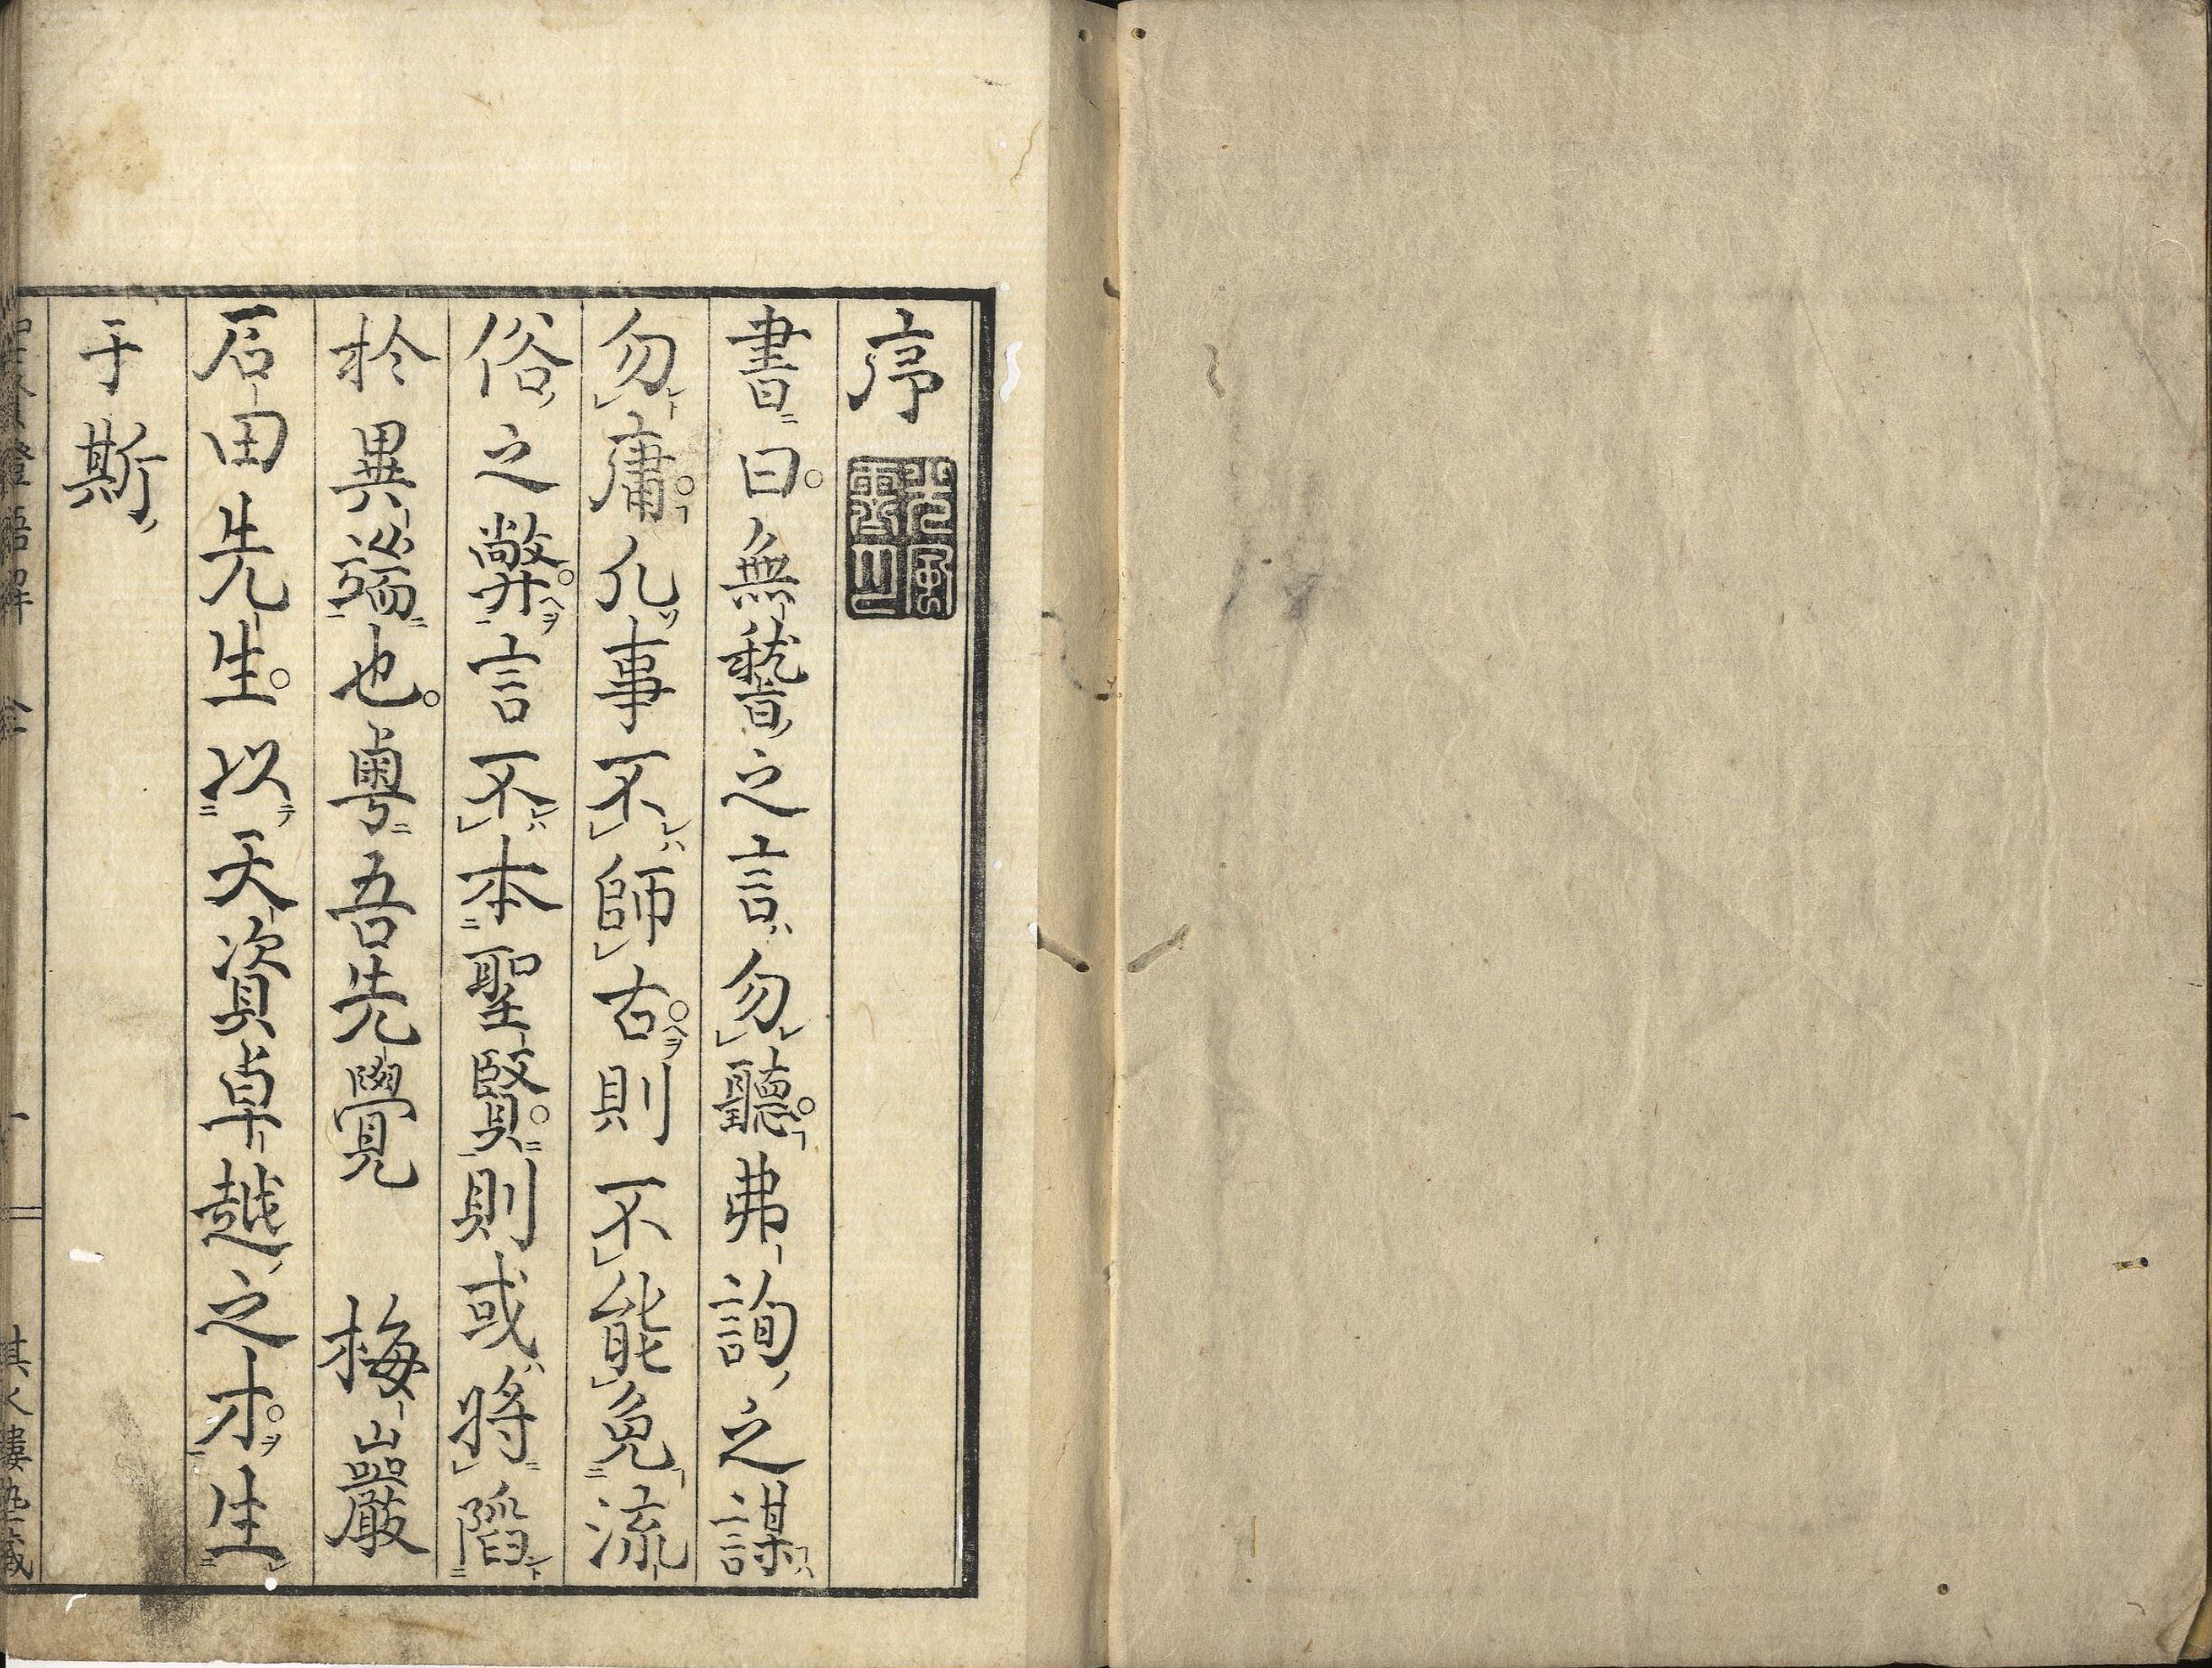 序
書曰無稽之言勿聽弗詢之謀
勿庸凡事不師古則不能免流
俗之弊言不本聖賢則或將蹈
於異也粤吾先覺 梅巖
石田先生以天資卓越之才生
于